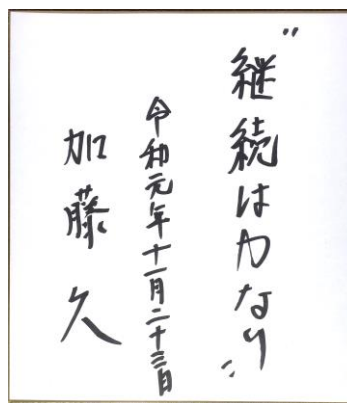 "継続は力なり"
令和元年十一月二十三日
加藤久